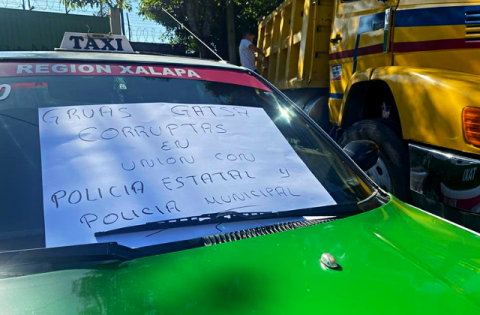 TAXI
REGION XALAPA
GRUAS GATSA
CORRUPTAS
EN
UNION CON
POLICIA ESTATAL Y
POLICIA MUNICIPAL